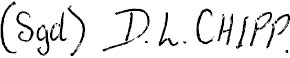 (Sgd) D.L. CHIPP.